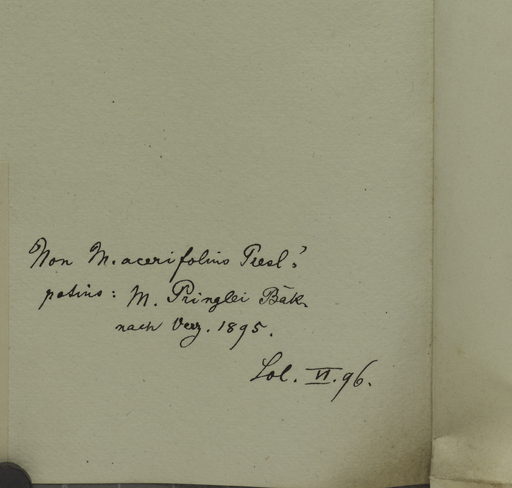 Non M. acerifolius Presl?
potius: M. Pringlei Bak.
nach Verz. 1895.
Lol. VI. 96.